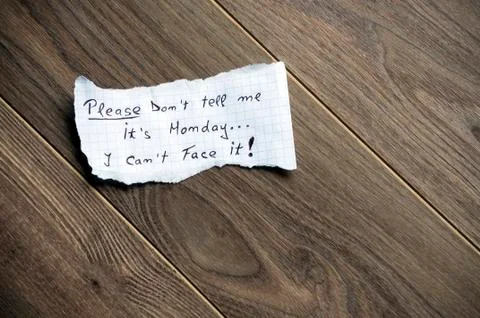 Please Don't tell me
it's Monday...
I can't Face it!